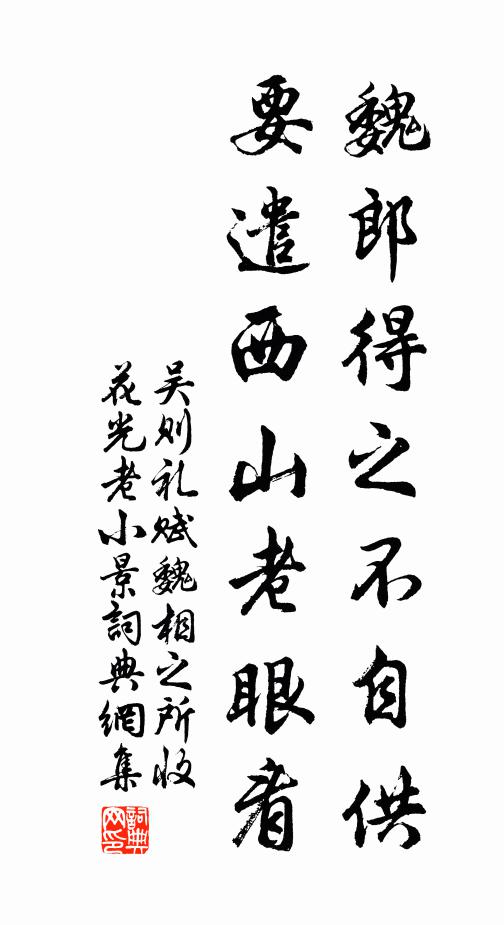 魏郎得之不自供
要遣西山老眼看
吴则礼赋魏相之所收
花光老小景詞典網集
詞典
网印